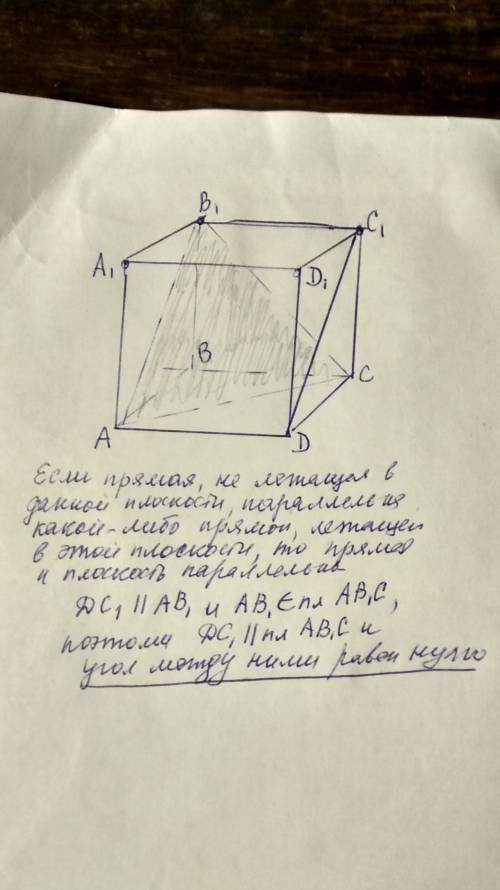 B₁
C₁
A₁
D₁
B
C
A
D
Если прямая, не лежащая в
данной плоскости, параллельна
какой-либо прямой, лежащей
в этой плоскости, то прямая
и плоскость параллельны
DC₁ || AB₁ и AB₁ ∈ пл AB₁C,
поэтому DC₁ || пл AB₁C и
угол между ними равен нулю